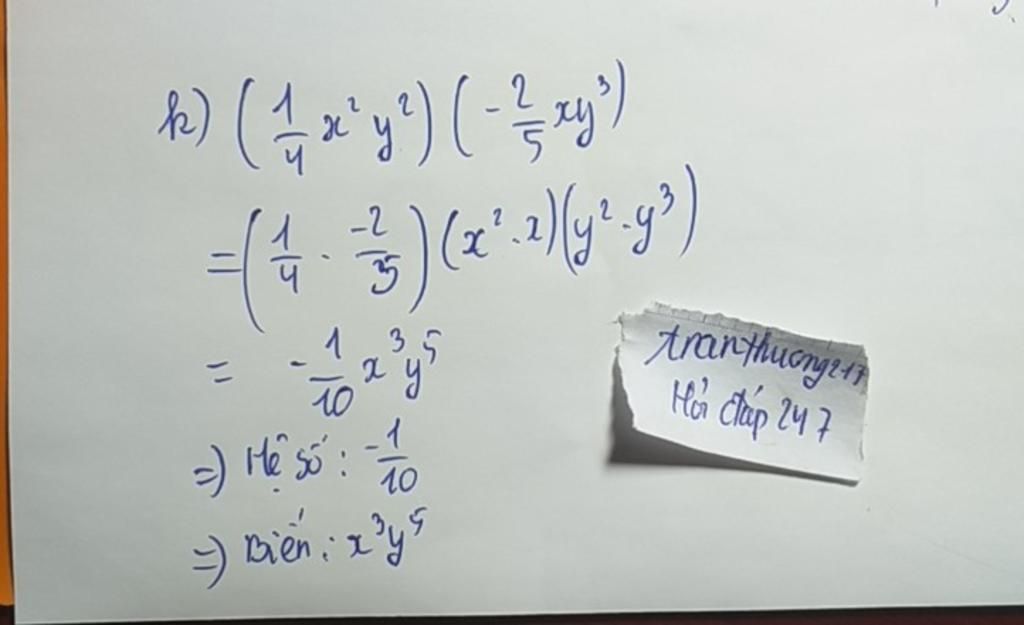 k) (1/4 x² y²) (-2/5 xy³)
= (1/4 . -2/5) (x² . x)(y² . y³)
= -1/10 x³y⁵
=) Hệ số : -1/10
=) Biến : x³y⁵
tranthuong217
Hỏi đáp 247